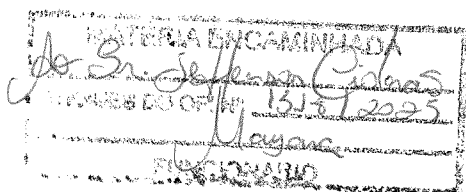 MATÉRIA ENCAMINHADA
Ao Sr. Jefferson
ATRAVÉS DO OF. Nº 1518/2025
Mayana
FUNCIONÁRIO